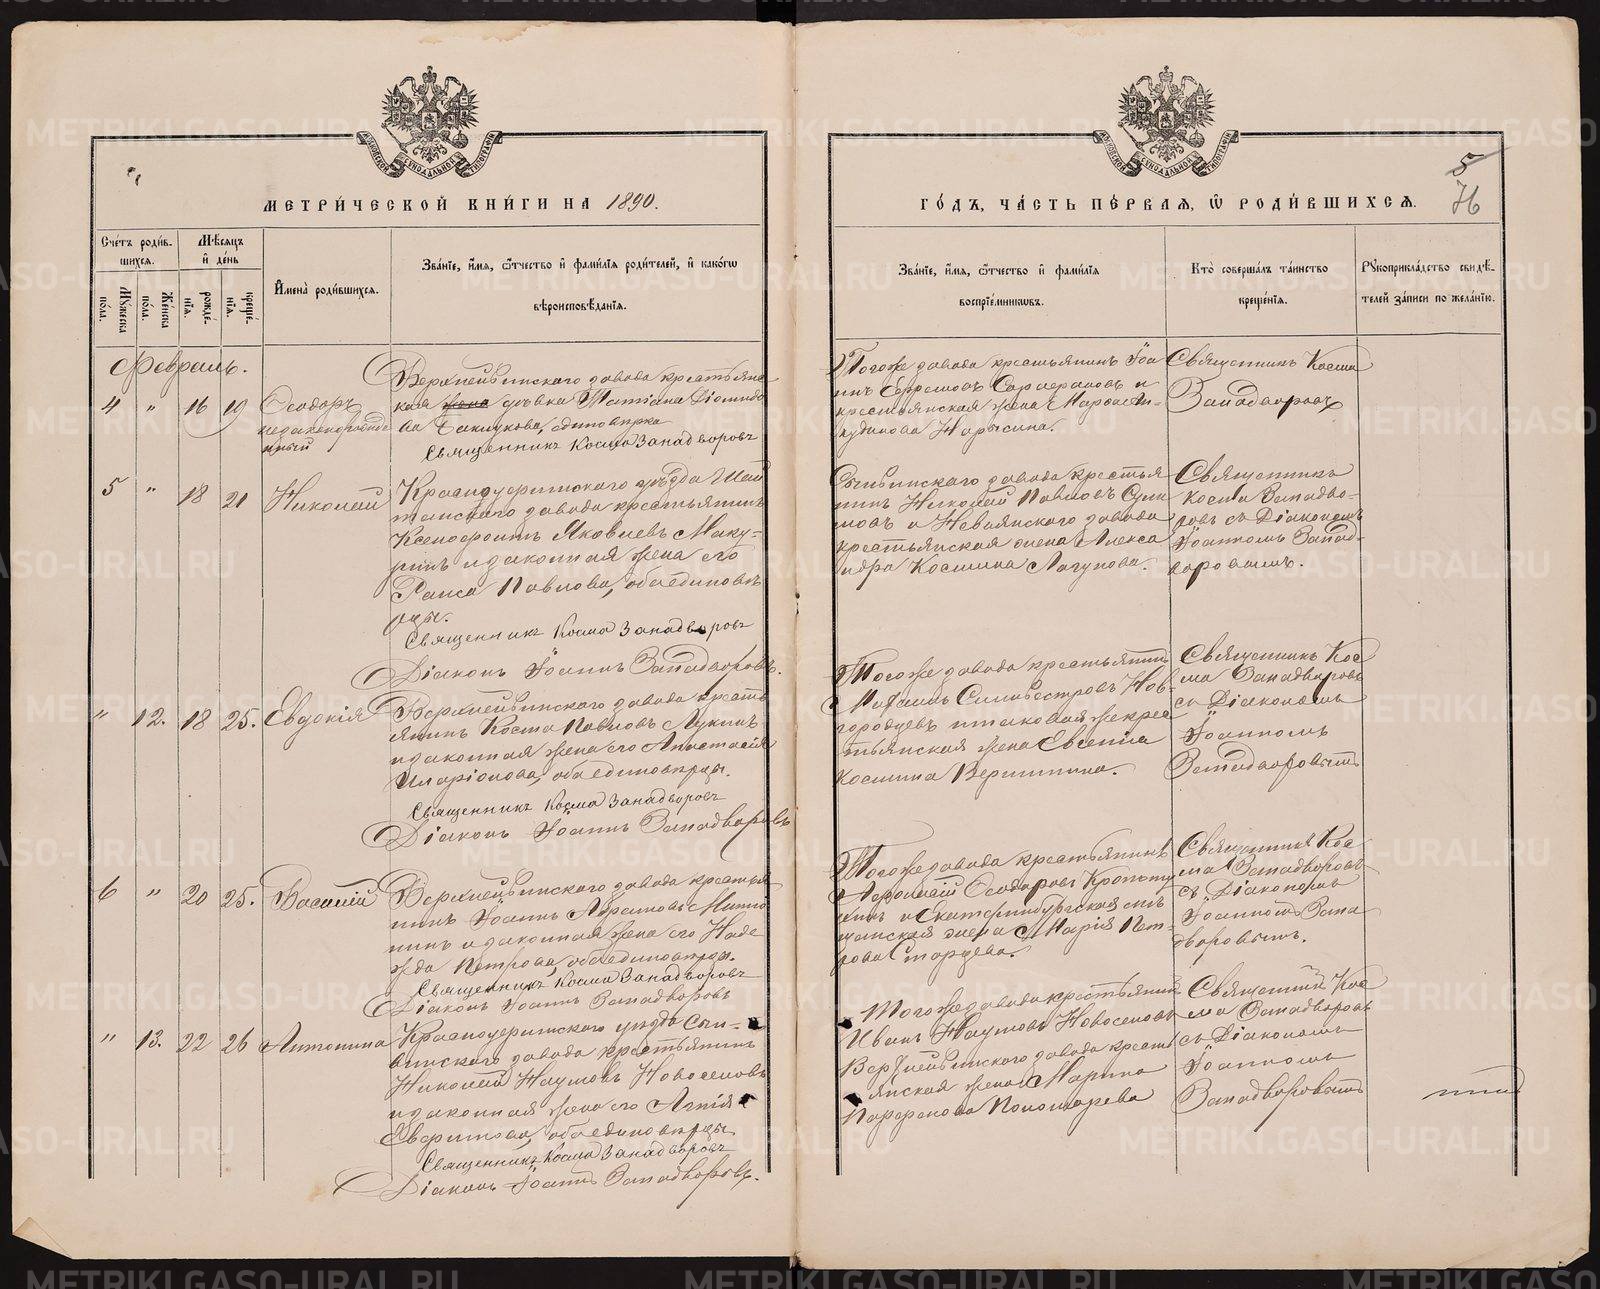 МЕТРИ́ЧЕСКОЙ КНИ́ГИ НА 1890.
Сче́тъ роди́в-
шихся.
Му́жеска
по́ла.
Же́нска
по́ла.
Мѣ́сяцъ
и҆ де́нь
рожде́-
нїя.
креще́-
нїя.
И҆мена̀ роди́вшихся.
Зва́нїе, и҆́мя, ѿчество и҆ фами́лїя роди́телей, и҆ како́гѡ
вѣроисповѣ́данїя.
Февраль.
4 " 16 19
Ѳеодоръ
незаконорожде
нный
Верхнейвинскаго завода крестьянс
кая жена дѣвка Татiана
единовѣрка
Священникъ Косма Западворовъ
5 " 18 21
Николай
Красноуфимскаго уѣзда Шай
танскаго завода крестьянинъ
Ксенофонтъ Яковлевъ Маку-
ринъ и законная жена его
Раиса Павлова, оба единовѣ
рцы.
Священникъ Косма Западворовъ
Дiаконъ Iоаннъ Западворовъ.
" 12. 18 25.
Евдокiя
Верхнейвинскаго завода кресть
янинъ Косма Павловъ Лукинъ
и законная жена его Анастасiя
Иларiонова, оба единовѣрцы.
Священникъ Косма Западворовъ
Дiаконъ Iоаннъ Западворовъ
6 " 20 25.
Василiй
Верхнейвинскаго завода крестья
нинъ Iоаннъ
нинъ и законная жена его Наде
жда Петрова, оба единовѣрцы.
Священникъ Косма Западворовъ
Дiаконъ Iоаннъ Западворовъ
" 13. 22 26
Антонина
Красноуфимскаго уѣзда Сы-
винскаго завода крестьянинъ
Николай Наумовъ Новоселовъ
и законная жена его Агнiя
оба единовѣрцы
Священникъ Косма Западворовъ
Дiаконъ Iоаннъ Западворовъ.
ГО́ДЪ, ЧА́СТЬ ПЕ́РВАЯ, Ѡ҆ РОДИ́ВШИХСЯ.
5
76
Зва́нїе, и҆́мя, ѿчество и҆ фами́лїя
воспрїе́мникѡвъ.
Кто̀ соверша́лъ та́инство
креще́нїя.
Рꙋкоприкла́дство свидѣ́-
телей за́писи по жела́нїю.
Тогоже завода крестьянинъ Iоа
ннъ Ефремовъ и
крестьянская жена Марѳа Ан-
кудинова Нарысина.
Священникъ Косма
Западворовъ
завода крестья
нинъ Николай Павловъ
и Невьянскаго завода
крестьянская жена Алекса
ндра Космина Лагунова.
Священникъ
Косма Западво-
ровъ съ Дiакономъ
Iоанномъ Запад-
воровымъ.
Тогоже завода крестьянинъ
Максимъ Силивестровъ Нов-
городцевъ и таковая же крес
тьянская жена Евгенiя
Космина Вершинина.
Священникъ Кос
ма Западворовъ
съ Дiакономъ
Iоанномъ
Западворовымъ
Тогоже завода крестьянинъ
Аѳонасiй Ѳеодоровъ
и Екатеринбургская мѣ
щанская жена Марiя Пет-
рова Старцева.
Священникъ Кос
ма Западворовъ
съ Дiакономъ
Iоанномъ Запа
дворовымъ.
Тогоже завода крестьянинъ
Иванъ Наумовъ Новоселовъ
Верхнейвинскаго завода кресть
янская жена Марина
Парфенова Пономарева
Священникъ Кос
ма Западворовъ
съ Дiакономъ
Iоанномъ
Западворовымъ
METRIKI.GASO-URAL.RU